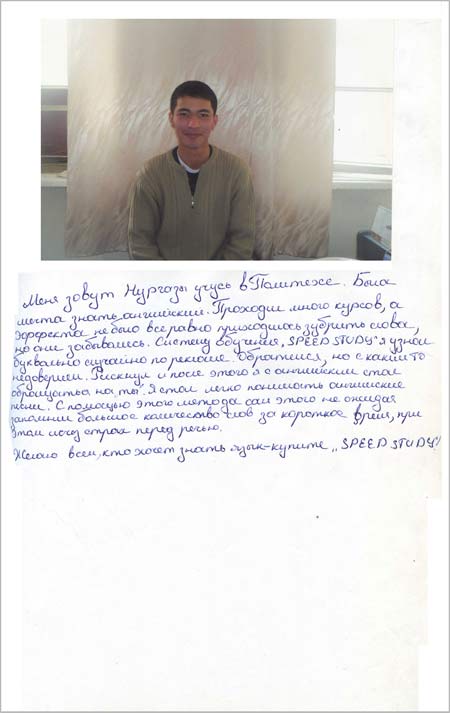 Меня зовут Нургазы учусь в Политехе. Была
мечта знать английский. Проходил много курсов, а
эффекта не было все равно приходилось зубрить слова,
но они забывались. Систему обучения „SPEED STUDY" я узнал
буквально случайно по рекламе. Обратился, но с каким то
недоверием. Рискнул и после этого я с английским стал
обращаться на „ты". Я стал легко понимать английские
песни. С помощью этого метода сам этого не ожидая
запомнил большое количество слов за короткое время, при
этом исчез страх перед речью.
Желаю всем, кто хочет знать язык-купите „SPEED STUDY"!